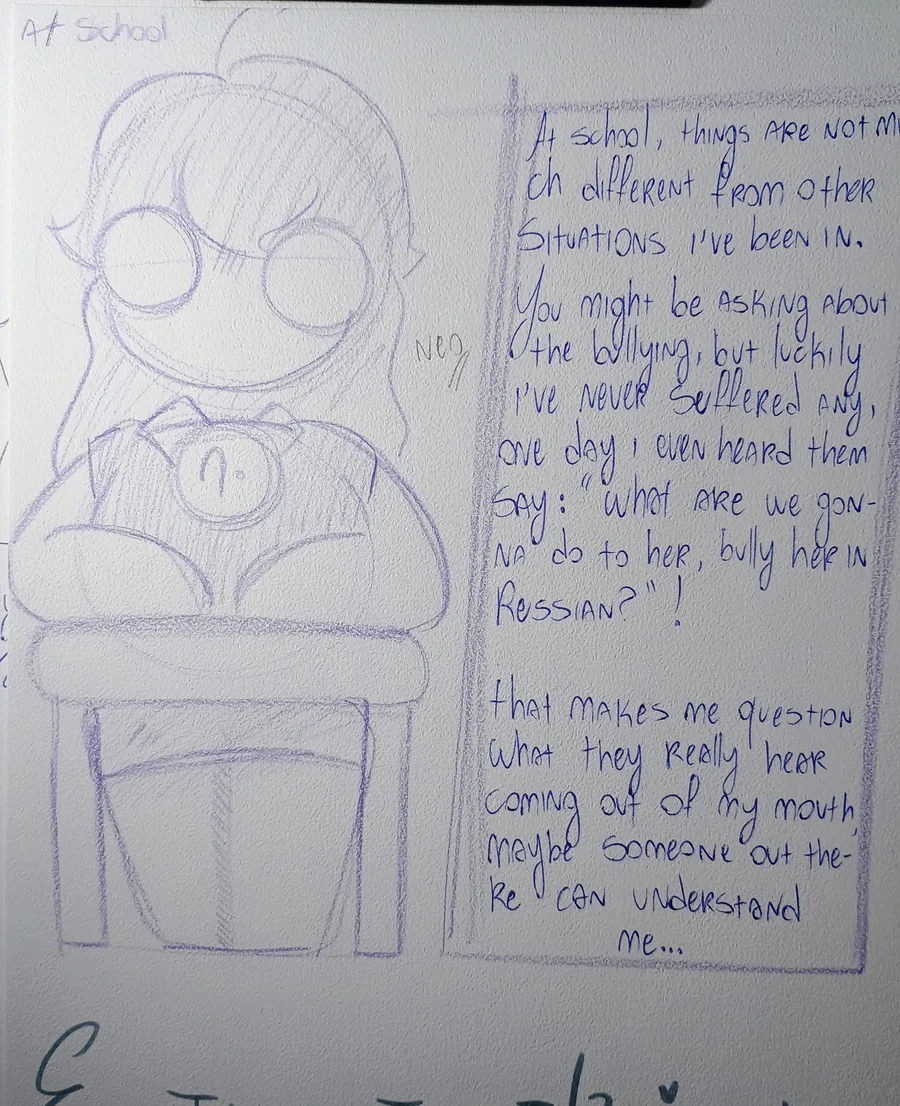 At School
At school, things are not mu
ch different from other
situations i've been in.
You might be asking about
the bullying, but luckily
i've never suffered any,
one day i even heard them
say: "What are we gon-
na do to her, bully her in
Russian?"!
that makes me question
what they really hear
coming out of my mouth,
maybe someone out the-
re can understand
me...